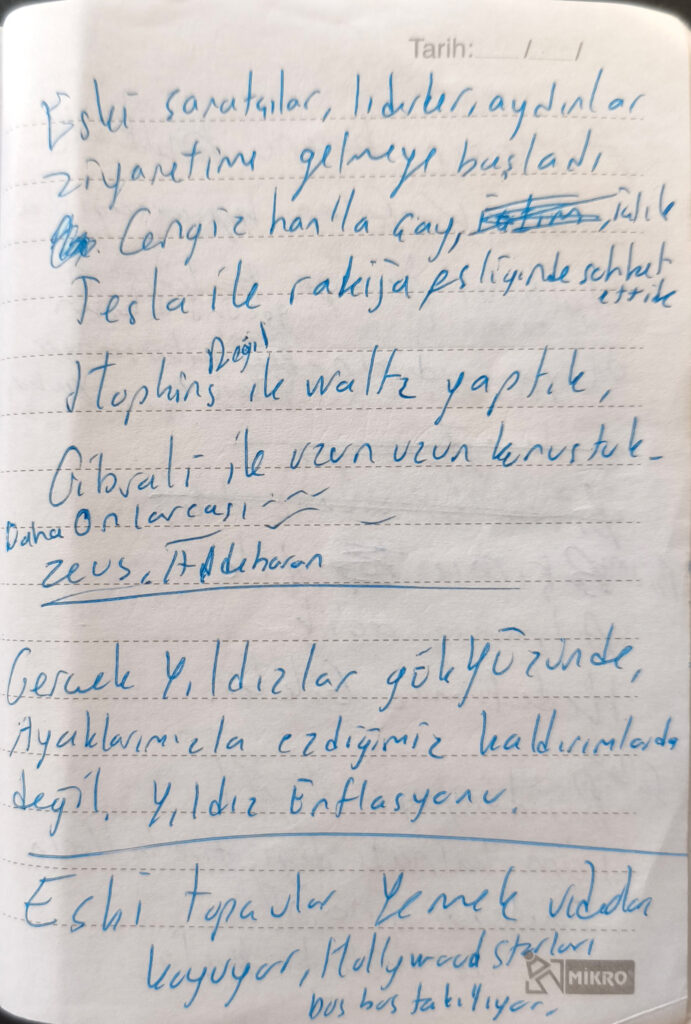 Tarih: / /
Eski sanatçılar, liderler, aydınlar
ziyaretime gelmeye başladı
Cengiz han'la çay, içtik
Tesla ile rakija eşliğinde sohbet
ettik
Değil
Hopkins ile waltz yaptık,
Cibrali ile uzun uzun konuştuk
Daha Onlarcası
Zeus, Aldebaran
Gerçek Yıldızlar gökyüzünde,
Ayaklarımızla ezdiğimiz kaldırımlarda
değil. Yıldız Enflasyonu.
Eski topçular Yemek videoları
koyuyor, Hollywood starları
boş boş takılıyor.
MİKRO